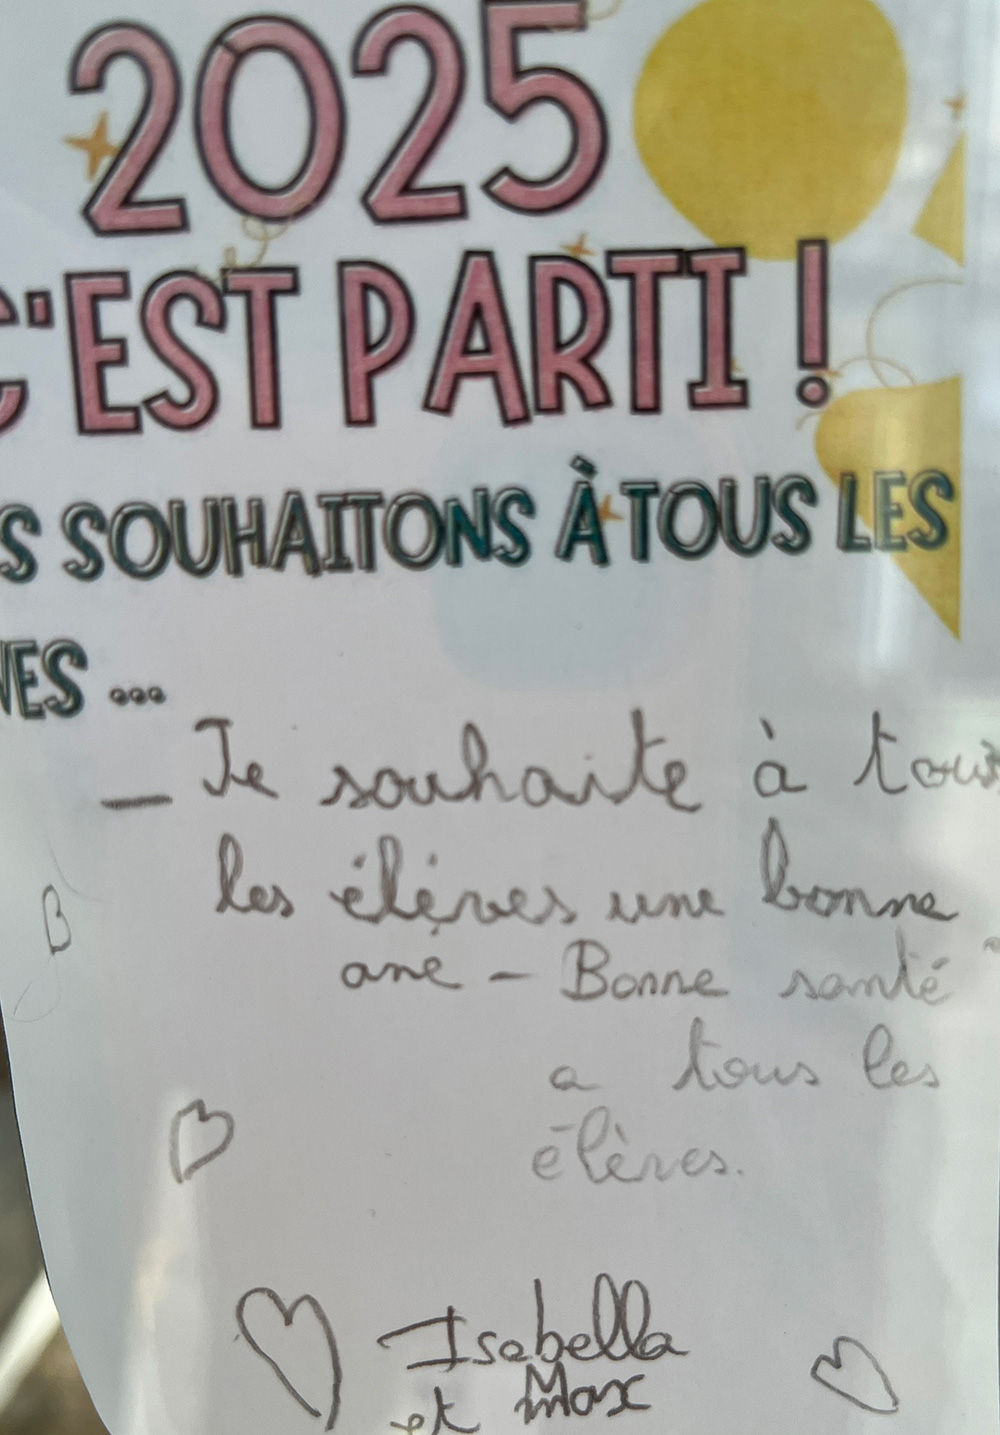 2025
C'EST PARTI !
S SOUHAITONS À TOUS LES
VES ...
— Je souhaite à tous
les élèves une bonne
ané - Bonne santé
a tous les
élèves.
Isabella
et Max